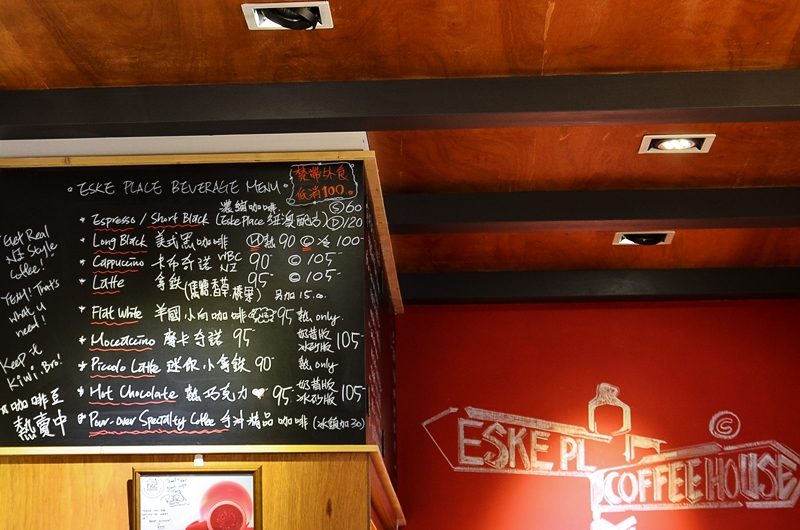 ESKE PLACE BEVERAGE MENU
禁帶外食
低消100。
濃縮咖啡 Ⓢ60
* Espresso / Short Black (Eske Place 紐澳配方) Ⓓ120
* Long Black 美式黑咖啡 Ⓗ熱 90 Ⓒ冷 100-
* Cappuccino 卡布奇諾 WBC NZ 90- Ⓒ 105-
* Latte 拿鐵 (焦糖、香草、榛果) 95- Ⓒ 105-
另加 15.
* Flat White 羊國小白咖啡 95 熱 only.
* Moccaccino 摩卡奇諾 95- 奶昔版 冰砂版 105-
* Piccolo Latte 迷你小拿鐵 90- 熱 only
* Hot Chocolate 熱巧克力 95- 奶昔版 冰砂版 105-
* Pour-over Specialty Coffee 手沖精品咖啡 (冰鎮加30)
Get Real
NZ Style
Coffee!
YEAH! That's
what u
need!
Keep it
Kiwi, Bro!
咖啡豆
熱賣中
ESKE PL
Ⓒ
COFFEE HOUSE